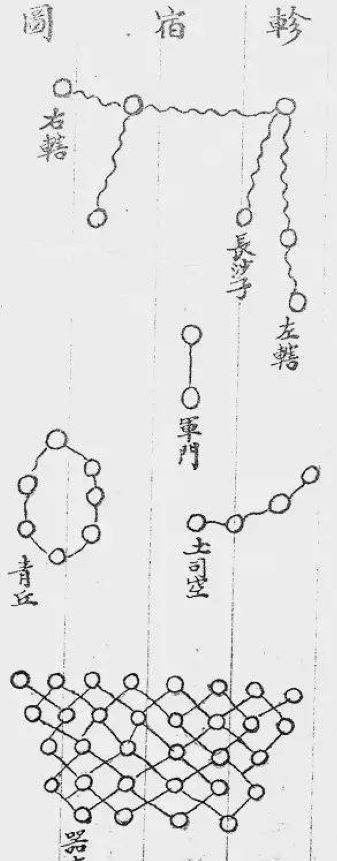 軫宿圖
右轄
長沙子
左轄
軍門
土司空
青丘
器